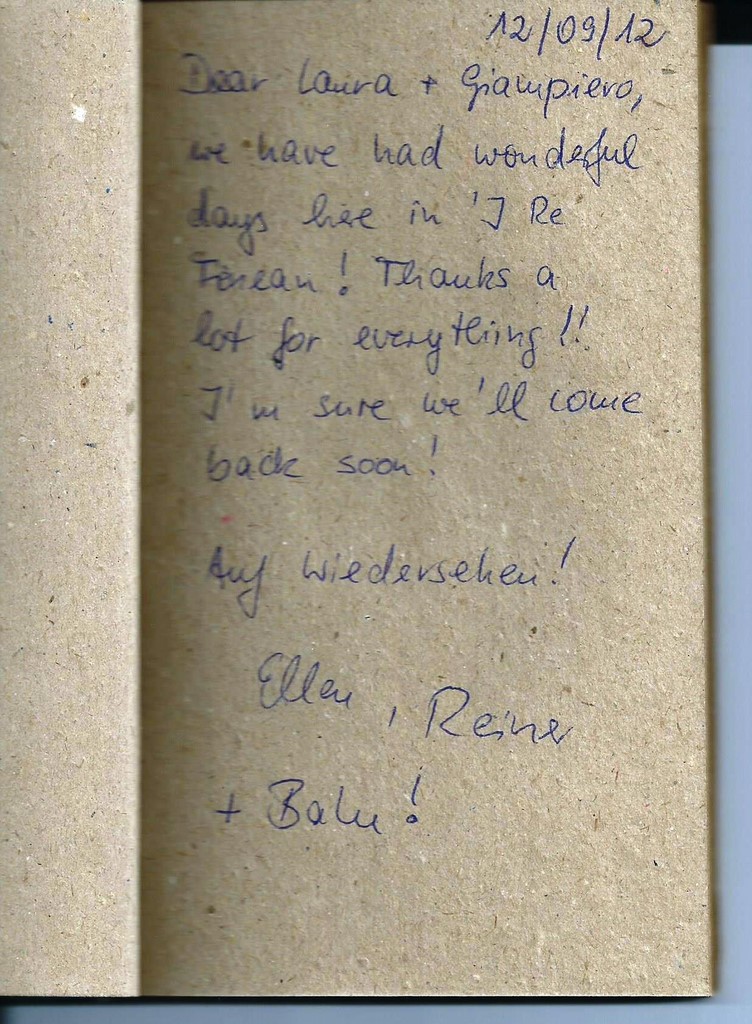 12/09/12
Dear Laura + Giampiero,
we have had wonderful
days here in 'I Re
! Thanks a
lot for everything!!
I'm sure we'll come
back soon!
Auf Wiedersehen!
Ellen, Reiner
+ Balu!